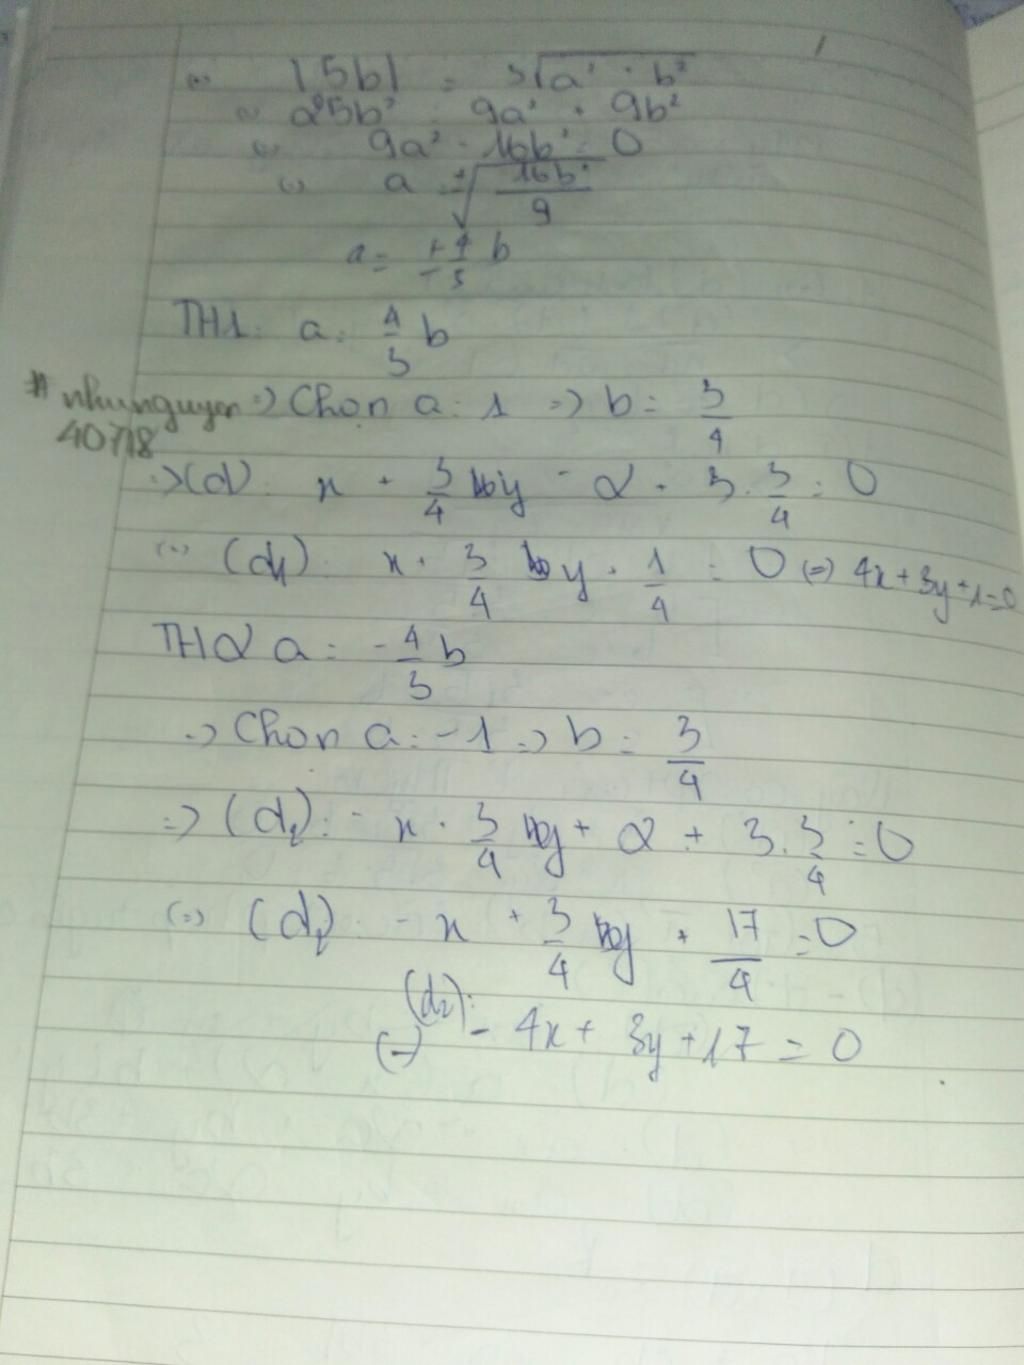 (=) |5b| = 3√(a² + b²)
(=) 25b² = 9a² + 9b²
(=) 9a² - 16b² = 0
(=) a = ±√(16b²/9)
a = ±4/3 b
TH1: a = 4/3 b
# nhunguyen 40718
=> Chọn a = 1 => b = 3/4
=> (d): x + 3/4 y - 2 + 3.3/4 = 0
(=) (d1): x + 3/4 y + 1/4 = 0 (=) 4x + 3y + 1 = 0
TH2 a = -4/3 b
=> Chọn a = -1 => b = 3/4
=> (d2): - x + 3/4 y + 2 + 3.3/4 = 0
(=) (d2): - x + 3/4 y + 17/4 = 0
(=) (d2): - 4x + 3y + 17 = 0